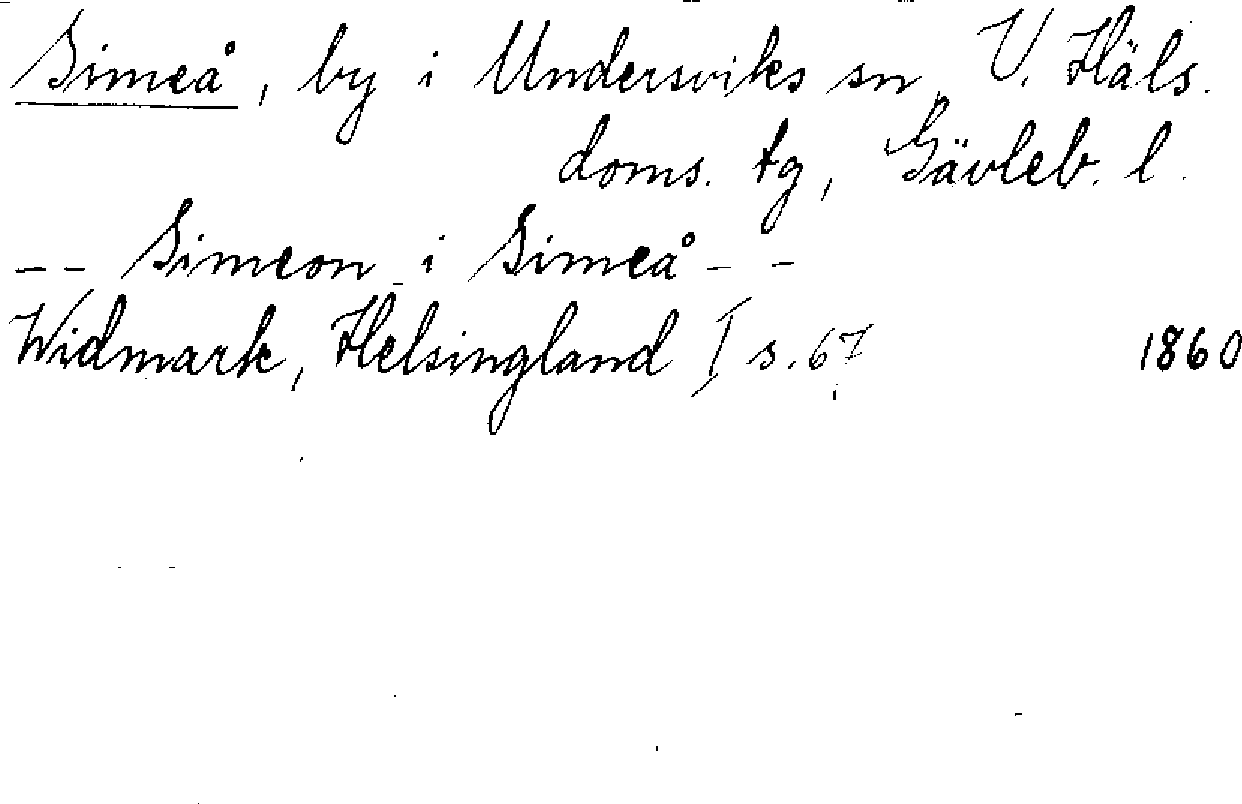 Simeå, by i Undersviks sn, V. Häls.
doms. tg, Gävleb. l.
-- Simeon i Simeå --
Widmark, Helsingland I s. 67 1860